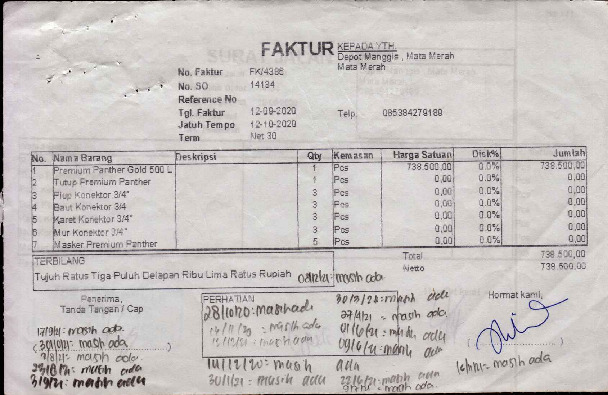 FAKTUR
KEPADA YTH.
Depot Manggis , Mata Merah
Mata Merah
No. Faktur FK/4386
No. SO 14134
Reference No
Tgl. Faktur 12-09-2020 Telp. 085384279189
Jatuh Tempo 12-10-2020
Term Net 30
No. Nama Barang Deskripsi Qty Kemasan Harga Satuan Disk% Jumlah
1 Premium Panther Gold 500 L 1 Pcs 738.500,00 0.0% 738.500,00
2 Tutup Premium Panther 1 Pcs 0,00 0.0% 0,00
3 Flup Konektor 3/4" 3 Pcs 0,00 0.0% 0,00
4 Baut Konektor 3/4 3 Pcs 0,00 0.0% 0,00
5 Karet Konektor 3/4" 3 Pcs 0,00 0.0% 0,00
6 Mur Konektor 3/4" 3 Pcs 0,00 0.0% 0,00
7 Masker Premium Panther 5 Pcs 0,00 0.0% 0,00
TERBILANG
Total 738.500,00
Netto 738.500,00
Tujuh Ratus Tiga Puluh Delapan Ribu Lima Ratus Rupiah masih ada
Penerima,
Tanda Tangan / Cap
PERHATIAN
Hormat kami,
28/10/20: masih ada
masih ada
14/12/20: masih ada
30/1/21: masih ada
30/3/21: masih ada
27/4/21: masih ada
01/6/21: masih ada
09/6/21: masih ada
22/6/21: masih ada
masih ada
17/9/21: masih ada
masih ada
masih ada
masih ada
3/9/21: masih ada
masih ada